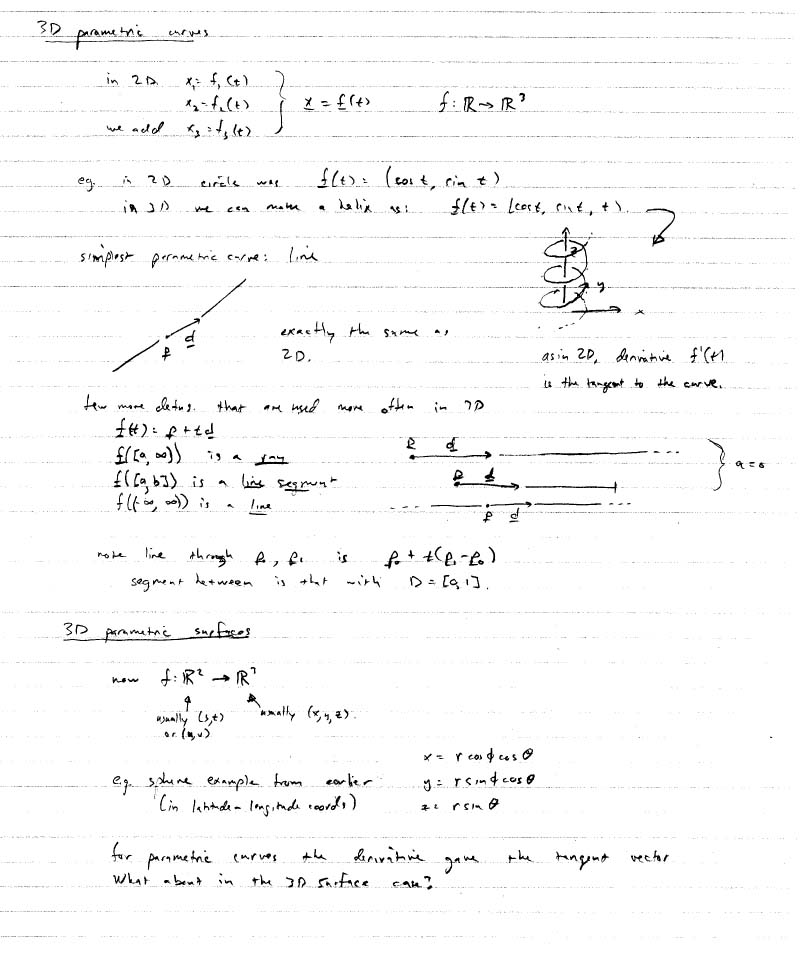 3D parametric curves
in 2D x₁ = f₁(t)
x₂ = f₂(t)
we add x₃ = f₃(t)
x = f(t)
f: ℝ → ℝ³
eg. in 2D circle was f(t) = (cos t, sin t)
in 3D we can make a helix as: f(t) = (cos t, sin t, t).
z
y
x
simplest parametric curve: line
p
d
exactly the same as
2D.
as in 2D, derivative f'(t)
is the tangent to the curve.
few more that are used more often in 3D
f(t) = p + td
f([a, ∞)) is a ray
f([a, b]) is a line segment
f((-∞, ∞)) is a line
p d
p d
p d
a = 0
note line through p₀, p₁ is p₀ + t(p₁ - p₀)
segment between is that with D = [0, 1].
3D parametric surfaces
now f: ℝ² → ℝ³
usually (s,t)
or (u,v)
usually (x, y, z).
e.g. sphere example from earlier
(in latitude-longitude coords)
x = r cos ϕ cos θ
y = r sin ϕ cos θ
z = r sin θ
for parametric curves the derivative gave the tangent vector
What about in the 3D surface case?